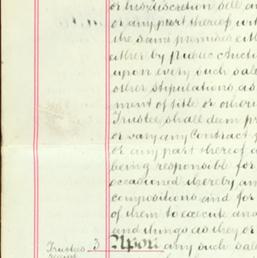 or his discretion sell a
or any part thereof wit
the same premises eith
either by public Auctio
upon every such sale
other stipulations as
ment of title or otherw
Trustee shall deem pr
or vary any Contract f
or any part thereof a
being responsible for
occasioned thereby an
compositions and for
of them to execute and
and things as they or
Trustees 3 Upon any such sale
receipt